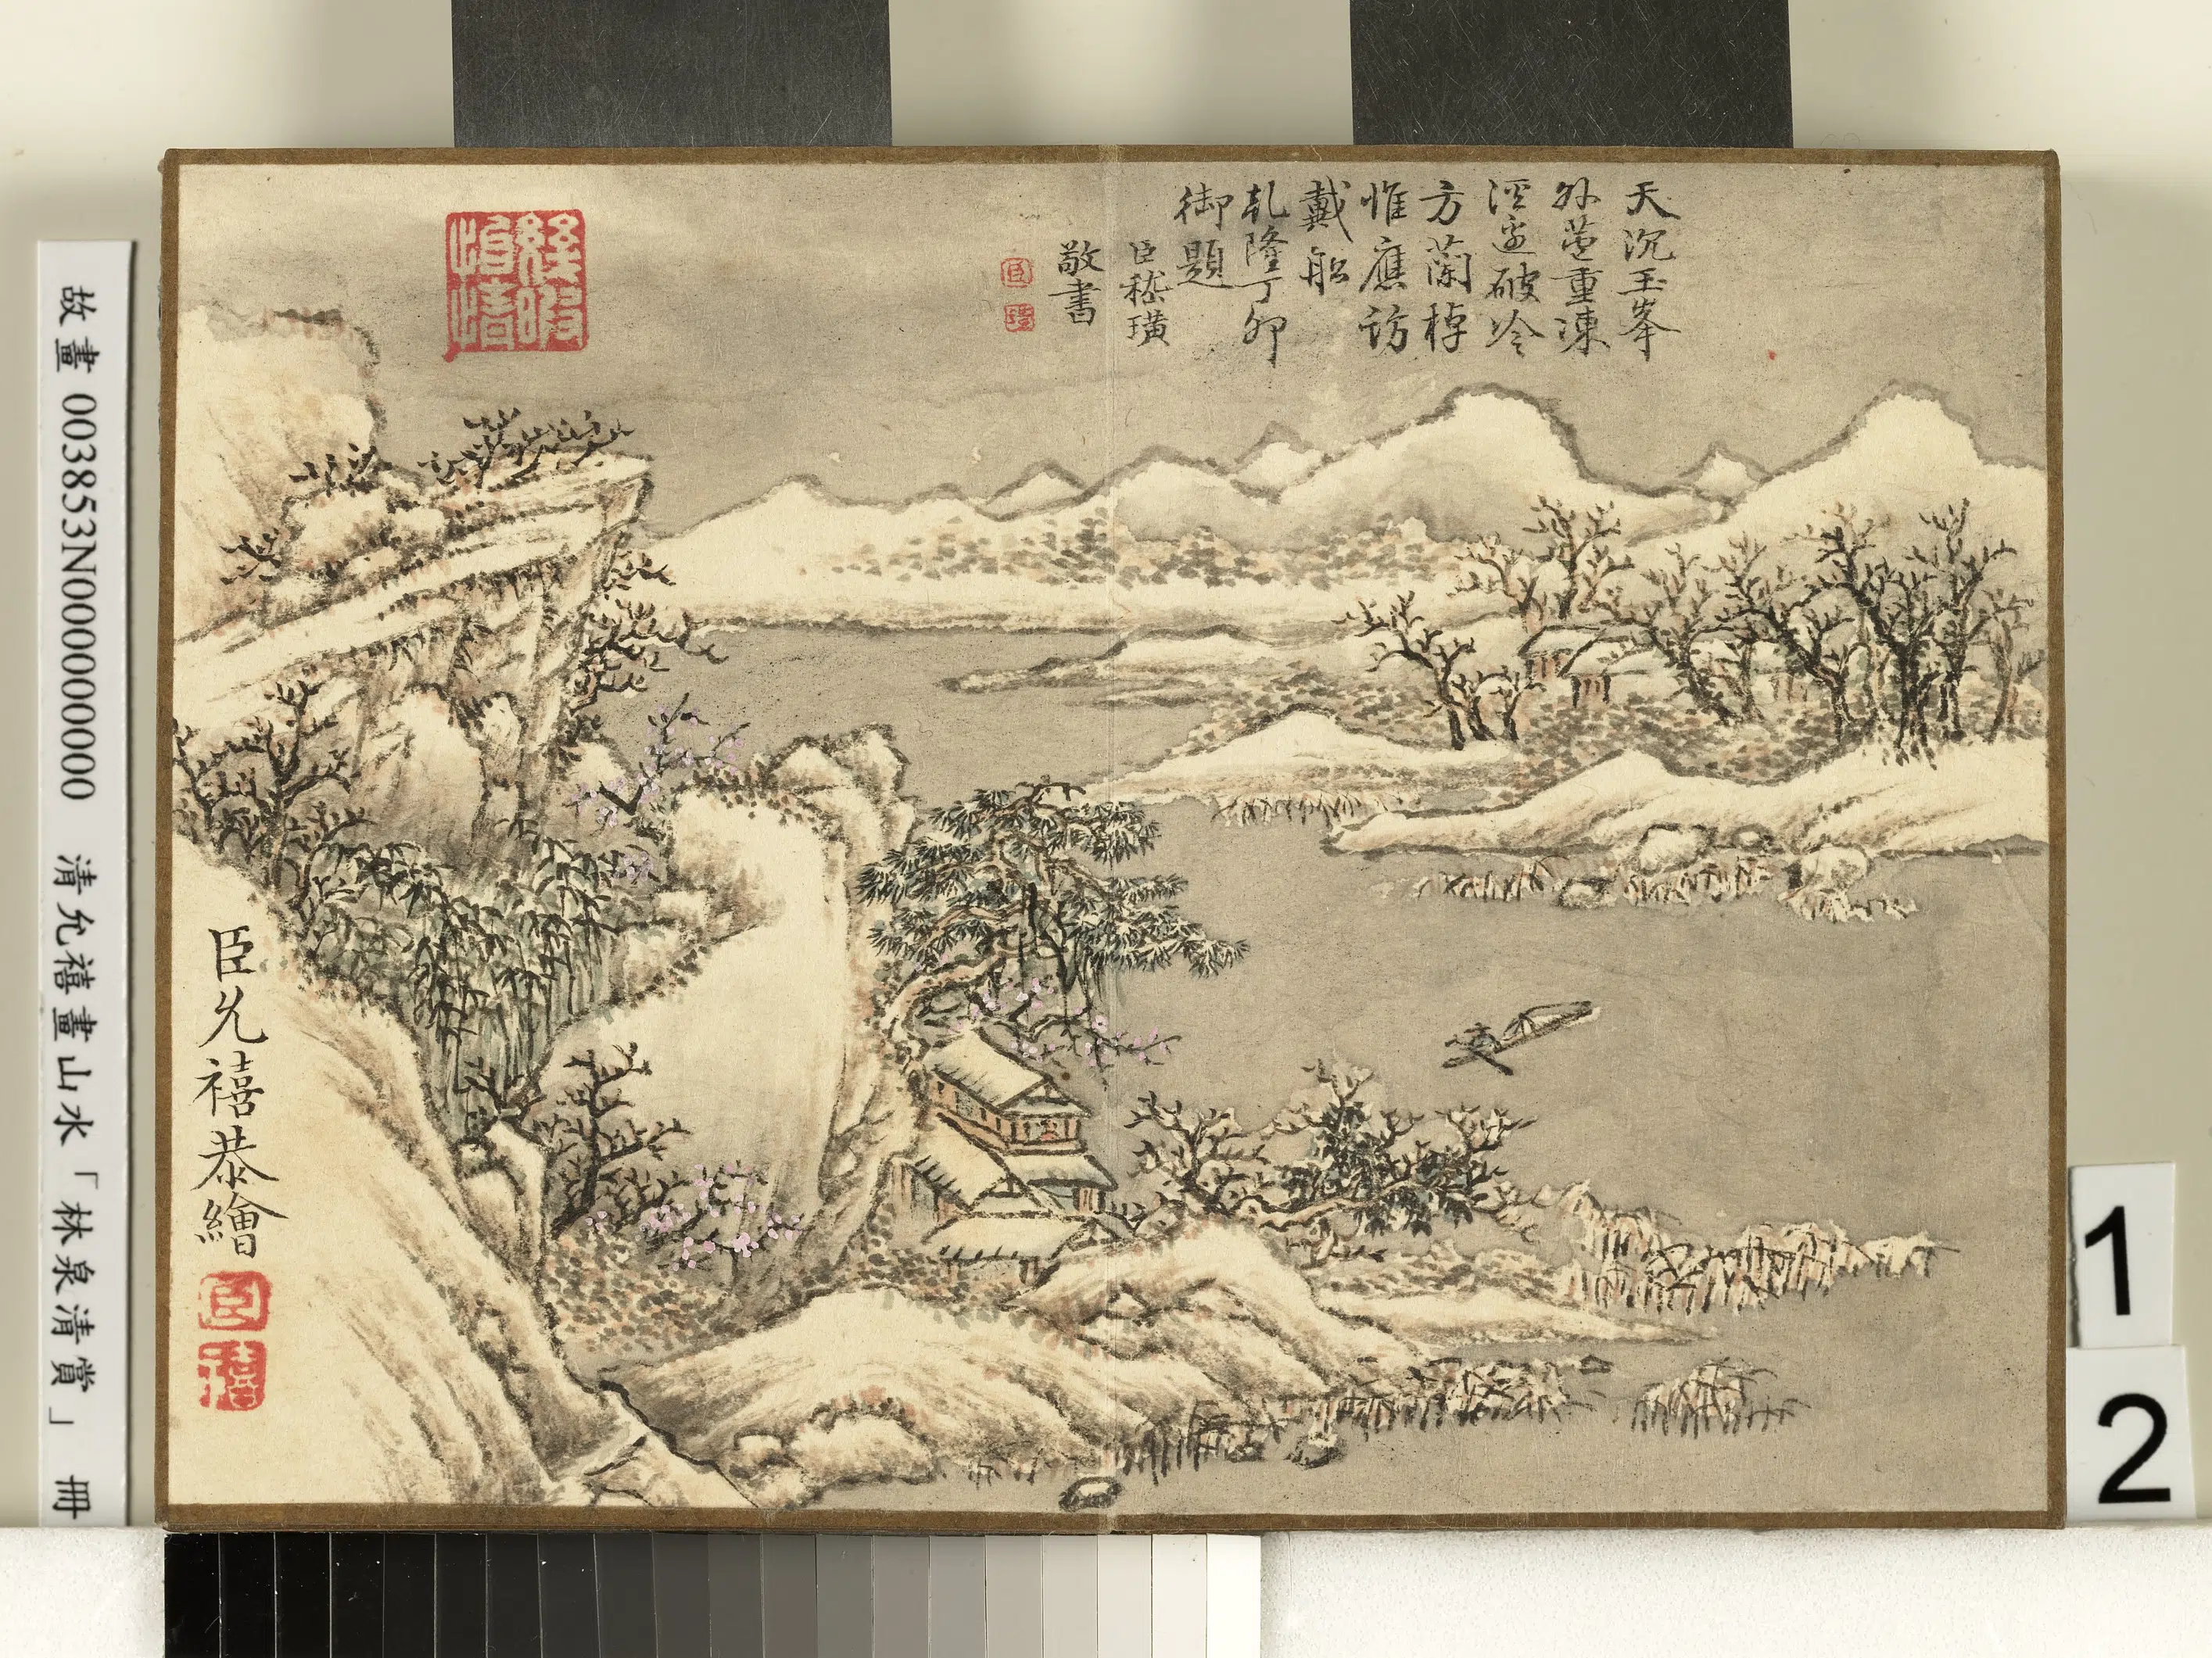 天沉玉峯
外蓝重凍
溼邊破冷
方蘭棹
惟應訪
戴船
乾隆丁卯
御題
臣嵇璜
敬書
臣
璜
臣允禧恭繪
臣
禧
故畫 003853N000000000 清允禧畫山水「林泉清賞」 冊
1
2